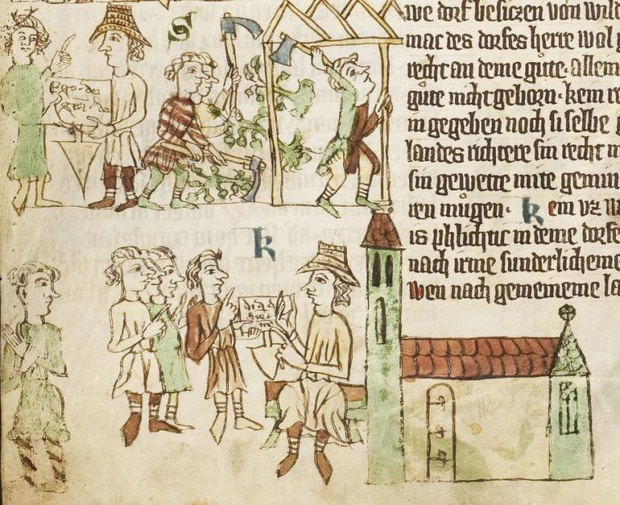 we dorf besiczen von wild
mac des dorfes herre wol
recht an deme gute. allem
gute nicht geborn. kem re
in gegeben noch si selbe
landes richtere sin recht
sin gewette mite gemin
ren mugen. k ein vz w
is phlichtic in deme dorfe
nach irme sunderlicheme
wen nach gemeineme la
S
Ego. de
k